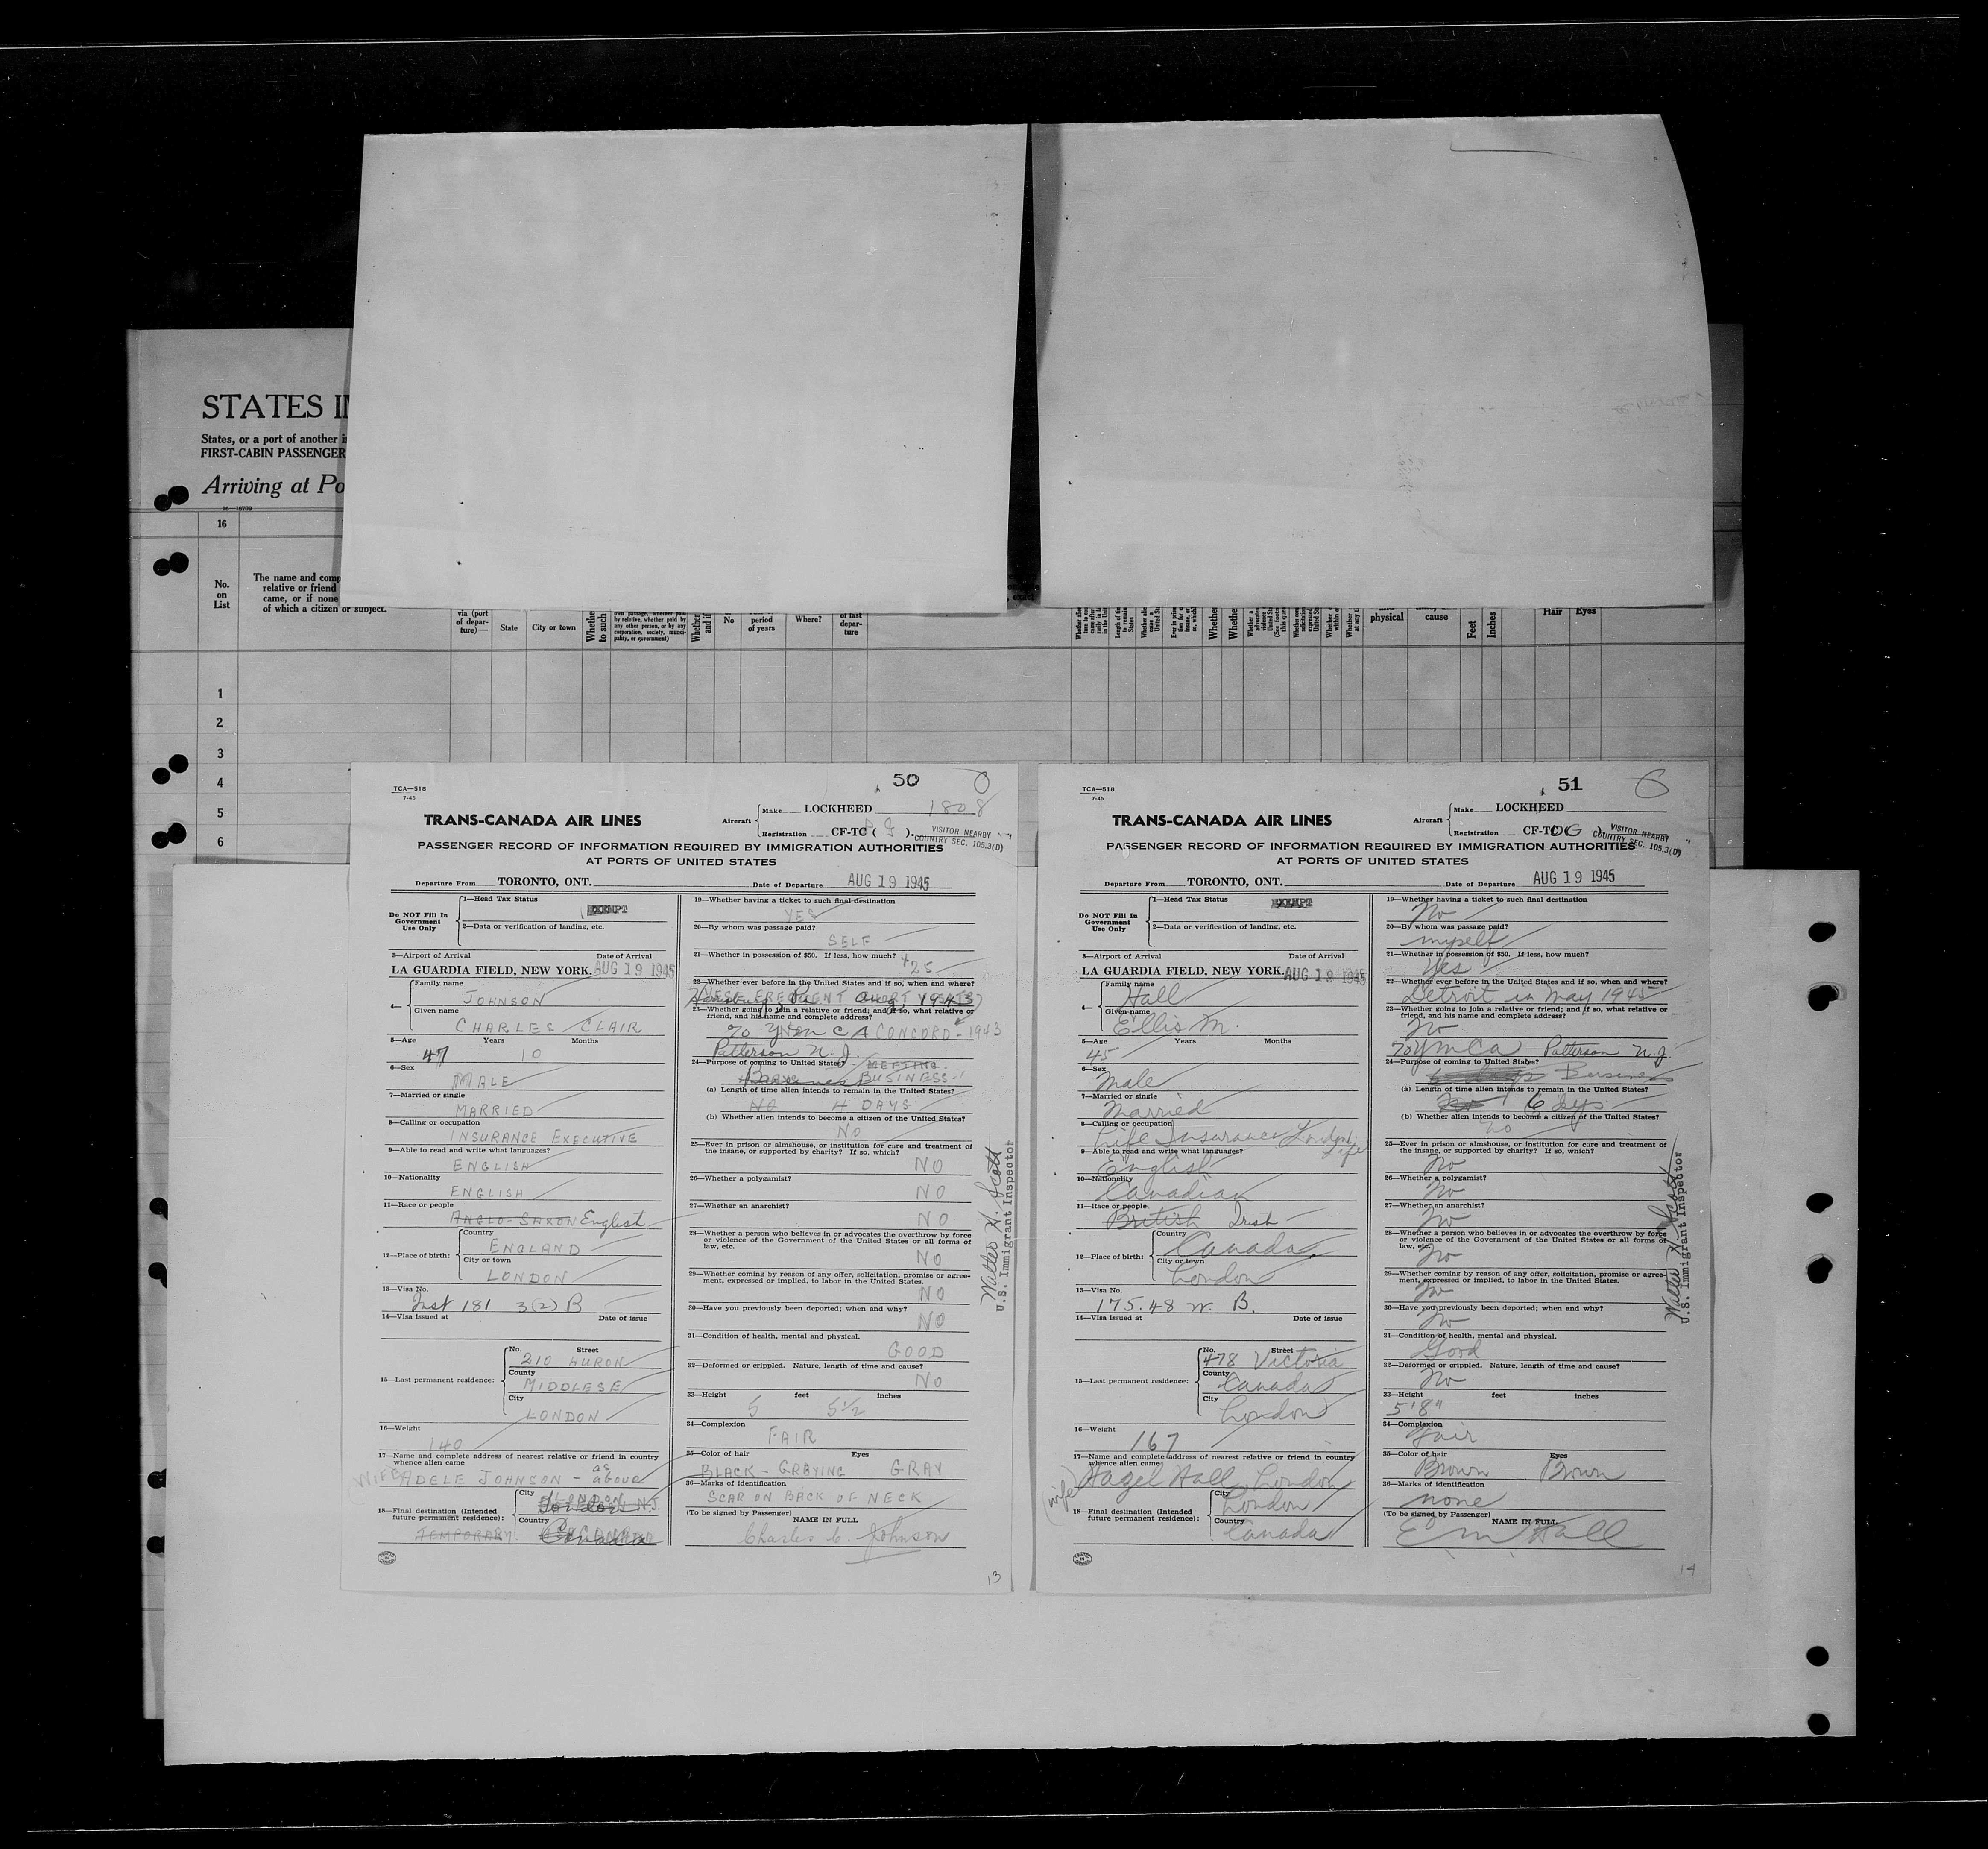 STATES IN
States, or a port of another
FIRST-CABIN PASSENGER
Arriving at Po
16
No.
on
List
The name and comp
relative or friend
came, or if none
of which a citizen or subject.
via (port
of depar-
ture)—
State
City or town
Whethe
to such
own passage, whether paid
by relative, whether paid by
any other person, or by any
corporation, society, munici-
pality, or government)
Whether
and if
No
period
of years
Where?
of last
depar-
ture
Whether
Whether
physical
cause
Feet
Inches
Hair
Eyes
1
2
3
4
5
6
TCA—518
7-45
50
1808
TRANS-CANADA AIR LINES
Aircraft
Make LOCKHEED
Registration CF-TC ( G ).
VISITOR NEARBY
COUNTRY SEC. 105.3(D)
PASSENGER RECORD OF INFORMATION REQUIRED BY IMMIGRATION AUTHORITIES
AT PORTS OF UNITED STATES
Departure From TORONTO, ONT. Date of Departure AUG 19 1945
Do NOT Fill In
Government
Use Only
1—Head Tax Status
EXEMPT
2—Data or verification of landing, etc.
3—Airport of Arrival Date of Arrival
LA GUARDIA FIELD, NEW YORK. AUG 19 1945
4—
Family name
JOHNSON
Given name
CHARLES CLAIR
5—Age Years Months
47 10
6—Sex
MALE
7—Married or single
MARRIED
8—Calling or occupation
INSURANCE EXECUTIVE
9—Able to read and write what languages?
ENGLISH
10—Nationality
ENGLISH
11—Race or people
ANGLO-SAXON English
12—Place of birth:
Country
ENGLAND
City or town
LONDON
13—Visa No.
Inst 181 3(2) B
14—Visa issued at Date of issue
15—Last permanent residence:
No. Street
210 HURON
County
MIDDLESEX
City
LONDON
16—Weight
140
17—Name and complete address of nearest relative or friend in country
whence alien came
WIFE ADELE JOHNSON - as above
18—Final destination (Intended
future permanent residence):
City
London N.J.
Country
TEMPORARY Canada
19—Whether having a ticket to such final destination
YES
20—By whom was passage paid?
SELF
21—Whether in possession of $50. If less, how much?
$25
22—Whether ever before in the United States and if so, when and where?
Harrisburg, Pa Aug, 1943
23—Whether going to join a relative or friend; and if so, what relative or
friend, and his name and complete address?
To YMCA CONCORD - 1943
Patterson N.J.
24—Purpose of coming to United States? MEETING
Business BUSINESS
(a) Length of time alien intends to remain in the United States?
NO 4 DAYS
(b) Whether alien intends to become a citizen of the United States?
NO
25—Ever in prison or almshouse, or institution for care and treatment of
the insane, or supported by charity? If so, which?
NO
26—Whether a polygamist?
NO
27—Whether an anarchist?
NO
28—Whether a person who believes in or advocates the overthrow by force
or violence of the Government of the United States or all forms of
law, etc.
NO
29—Whether coming by reason of any offer, solicitation, promise or agree-
ment, expressed or implied, to labor in the United States.
NO
30—Have you previously been deported; when and why?
NO
31—Condition of health, mental and physical.
GOOD
32—Deformed or crippled. Nature, length of time and cause?
NO
33—Height feet inches
5 5½
34—Complexion
FAIR
35—Color of hair Eyes
BLACK - GRAYING GRAY
36—Marks of identification
SCAR ON BACK OF NECK
(To be signed by Passenger)
NAME IN FULL
Charles C. Johnson
Walter H. Scott
U.S. Immigrant Inspector
13
TCA—518
7-45
51
TRANS-CANADA AIR LINES
Aircraft
Make LOCKHEED
Registration CF-TC
VISITOR NEARBY
COUNTRY SEC. 105.3(D)
PASSENGER RECORD OF INFORMATION REQUIRED BY IMMIGRATION AUTHORITIES
AT PORTS OF UNITED STATES
Departure From TORONTO, ONT. Date of Departure AUG 19 1945
Do NOT Fill In
Government
Use Only
1—Head Tax Status
EXEMPT
2—Data or verification of landing, etc.
3—Airport of Arrival Date of Arrival
LA GUARDIA FIELD, NEW YORK. AUG 19 1945
4—
Family name
Hall
Given name
Ellis M.
5—Age Years Months
45
6—Sex
Male
7—Married or single
Married
8—Calling or occupation
Life Insurance London Life
9—Able to read and write what languages?
English
10—Nationality
Canadian
11—Race or people
British Irish
12—Place of birth:
Country
Canada
City or town
London
13—Visa No.
175.48 W. B.
14—Visa issued at Date of issue
15—Last permanent residence:
No. Street
478 Victoria
County
Canada
City
London
16—Weight
167
17—Name and complete address of nearest relative or friend in country
whence alien came
(wife) Hazel Hall, London
18—Final destination (Intended
future permanent residence):
City
London
Country
Canada
19—Whether having a ticket to such final destination
No
20—By whom was passage paid?
myself
21—Whether in possession of $50. If less, how much?
Yes
22—Whether ever before in the United States and if so, when and where?
Detroit in May 1945
23—Whether going to join a relative or friend; and if so, what relative or
friend, and his name and complete address?
No
To YMCA Patterson N.J.
24—Purpose of coming to United States?
Business
(a) Length of time alien intends to remain in the United States?
6 dys.
(b) Whether alien intends to become a citizen of the United States?
no
25—Ever in prison or almshouse, or institution for care and treatment of
the insane, or supported by charity? If so, which?
No
26—Whether a polygamist?
No
27—Whether an anarchist?
No
28—Whether a person who believes in or advocates the overthrow by force
or violence of the Government of the United States or all forms of
law, etc.
No
29—Whether coming by reason of any offer, solicitation, promise or agree-
ment, expressed or implied, to labor in the United States.
No
30—Have you previously been deported; when and why?
No
31—Condition of health, mental and physical.
Good
32—Deformed or crippled. Nature, length of time and cause?
No
33—Height feet inches
5'8"
34—Complexion
Fair
35—Color of hair Eyes
Brown Brown
36—Marks of identification
none
(To be signed by Passenger)
NAME IN FULL
E M Hall
Walter H. Scott
U.S. Immigrant Inspector
14